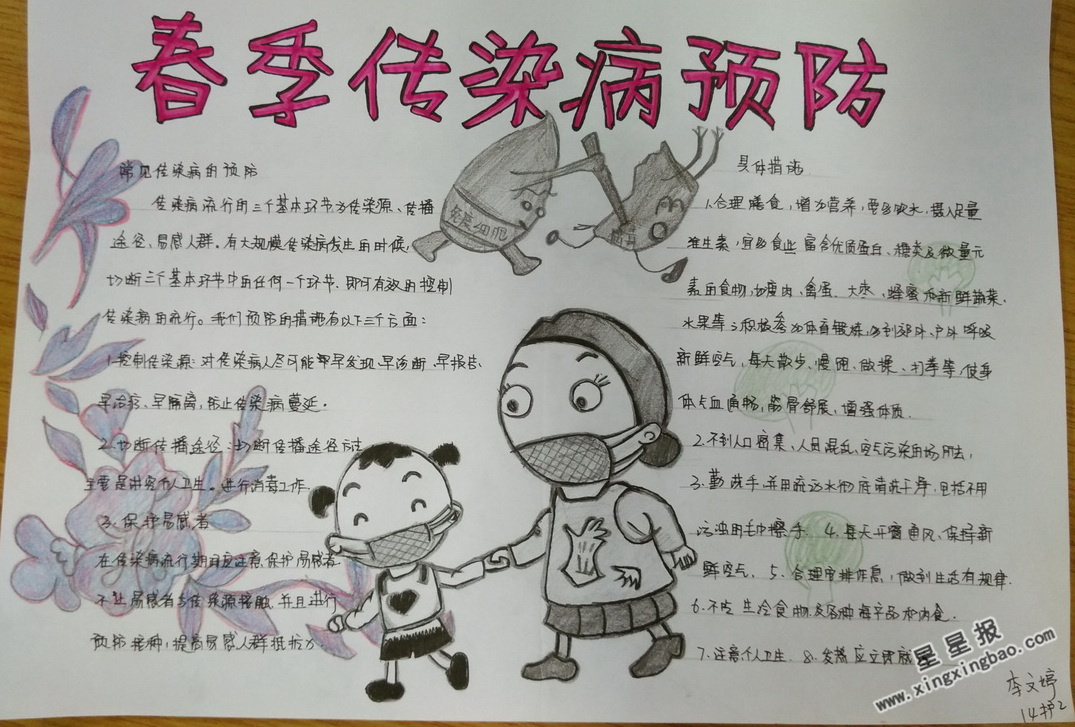 春季传染病预防
常见传染病的预防
传染病流行的三个基本环节为传染源、传播
途径、易感人群。有大规模传染病发生的时候,
切断三个基本环节中的任何一个环节,即可有效的控制
传染病的流行。我们预防的措施有以下三个方面:
1.控制传染源:对传染病人尽可能早发现、早诊断、早报告、
早治疗、早隔离,防止传染病蔓延。
2.切断传播途径:切断传播途径方法
主要是讲究个人卫生。进行消毒工作。
3.保护易感者
在传染病流行期间应注意保护易感者
不让易感者与传染源接触,并且进行
预防接种,提高易感人群抵抗力
免疫细胞
病毒
具体措施
1.合理膳食,增加营养,要多饮水,摄入足量
维生素,宜多食些富含优质蛋白、糖类及微量元
素的食物,如瘦肉、禽蛋、大枣、蜂蜜和新鲜蔬菜、
水果等;积极参加体育锻炼,多到郊外、户外呼吸
新鲜空气,每天散步、慢跑、做操、打拳等,使身
体气血通畅,筋骨舒展,增强体质.
2.不到人口密集、人员混乱,空气污染的场所去,
3.勤洗手,并用流动水彻底清洗干净,包括不用
污浊的毛巾擦手. 4.每天开窗通风,保持新
鲜空气、5、合理安排作息,做到生活有规律.
6.不吃生冷食物及各种海产品和肉食.
7.注意个人卫生. 8.发热应立
星星报
www.xingxingbao.com
李文婷
14护2